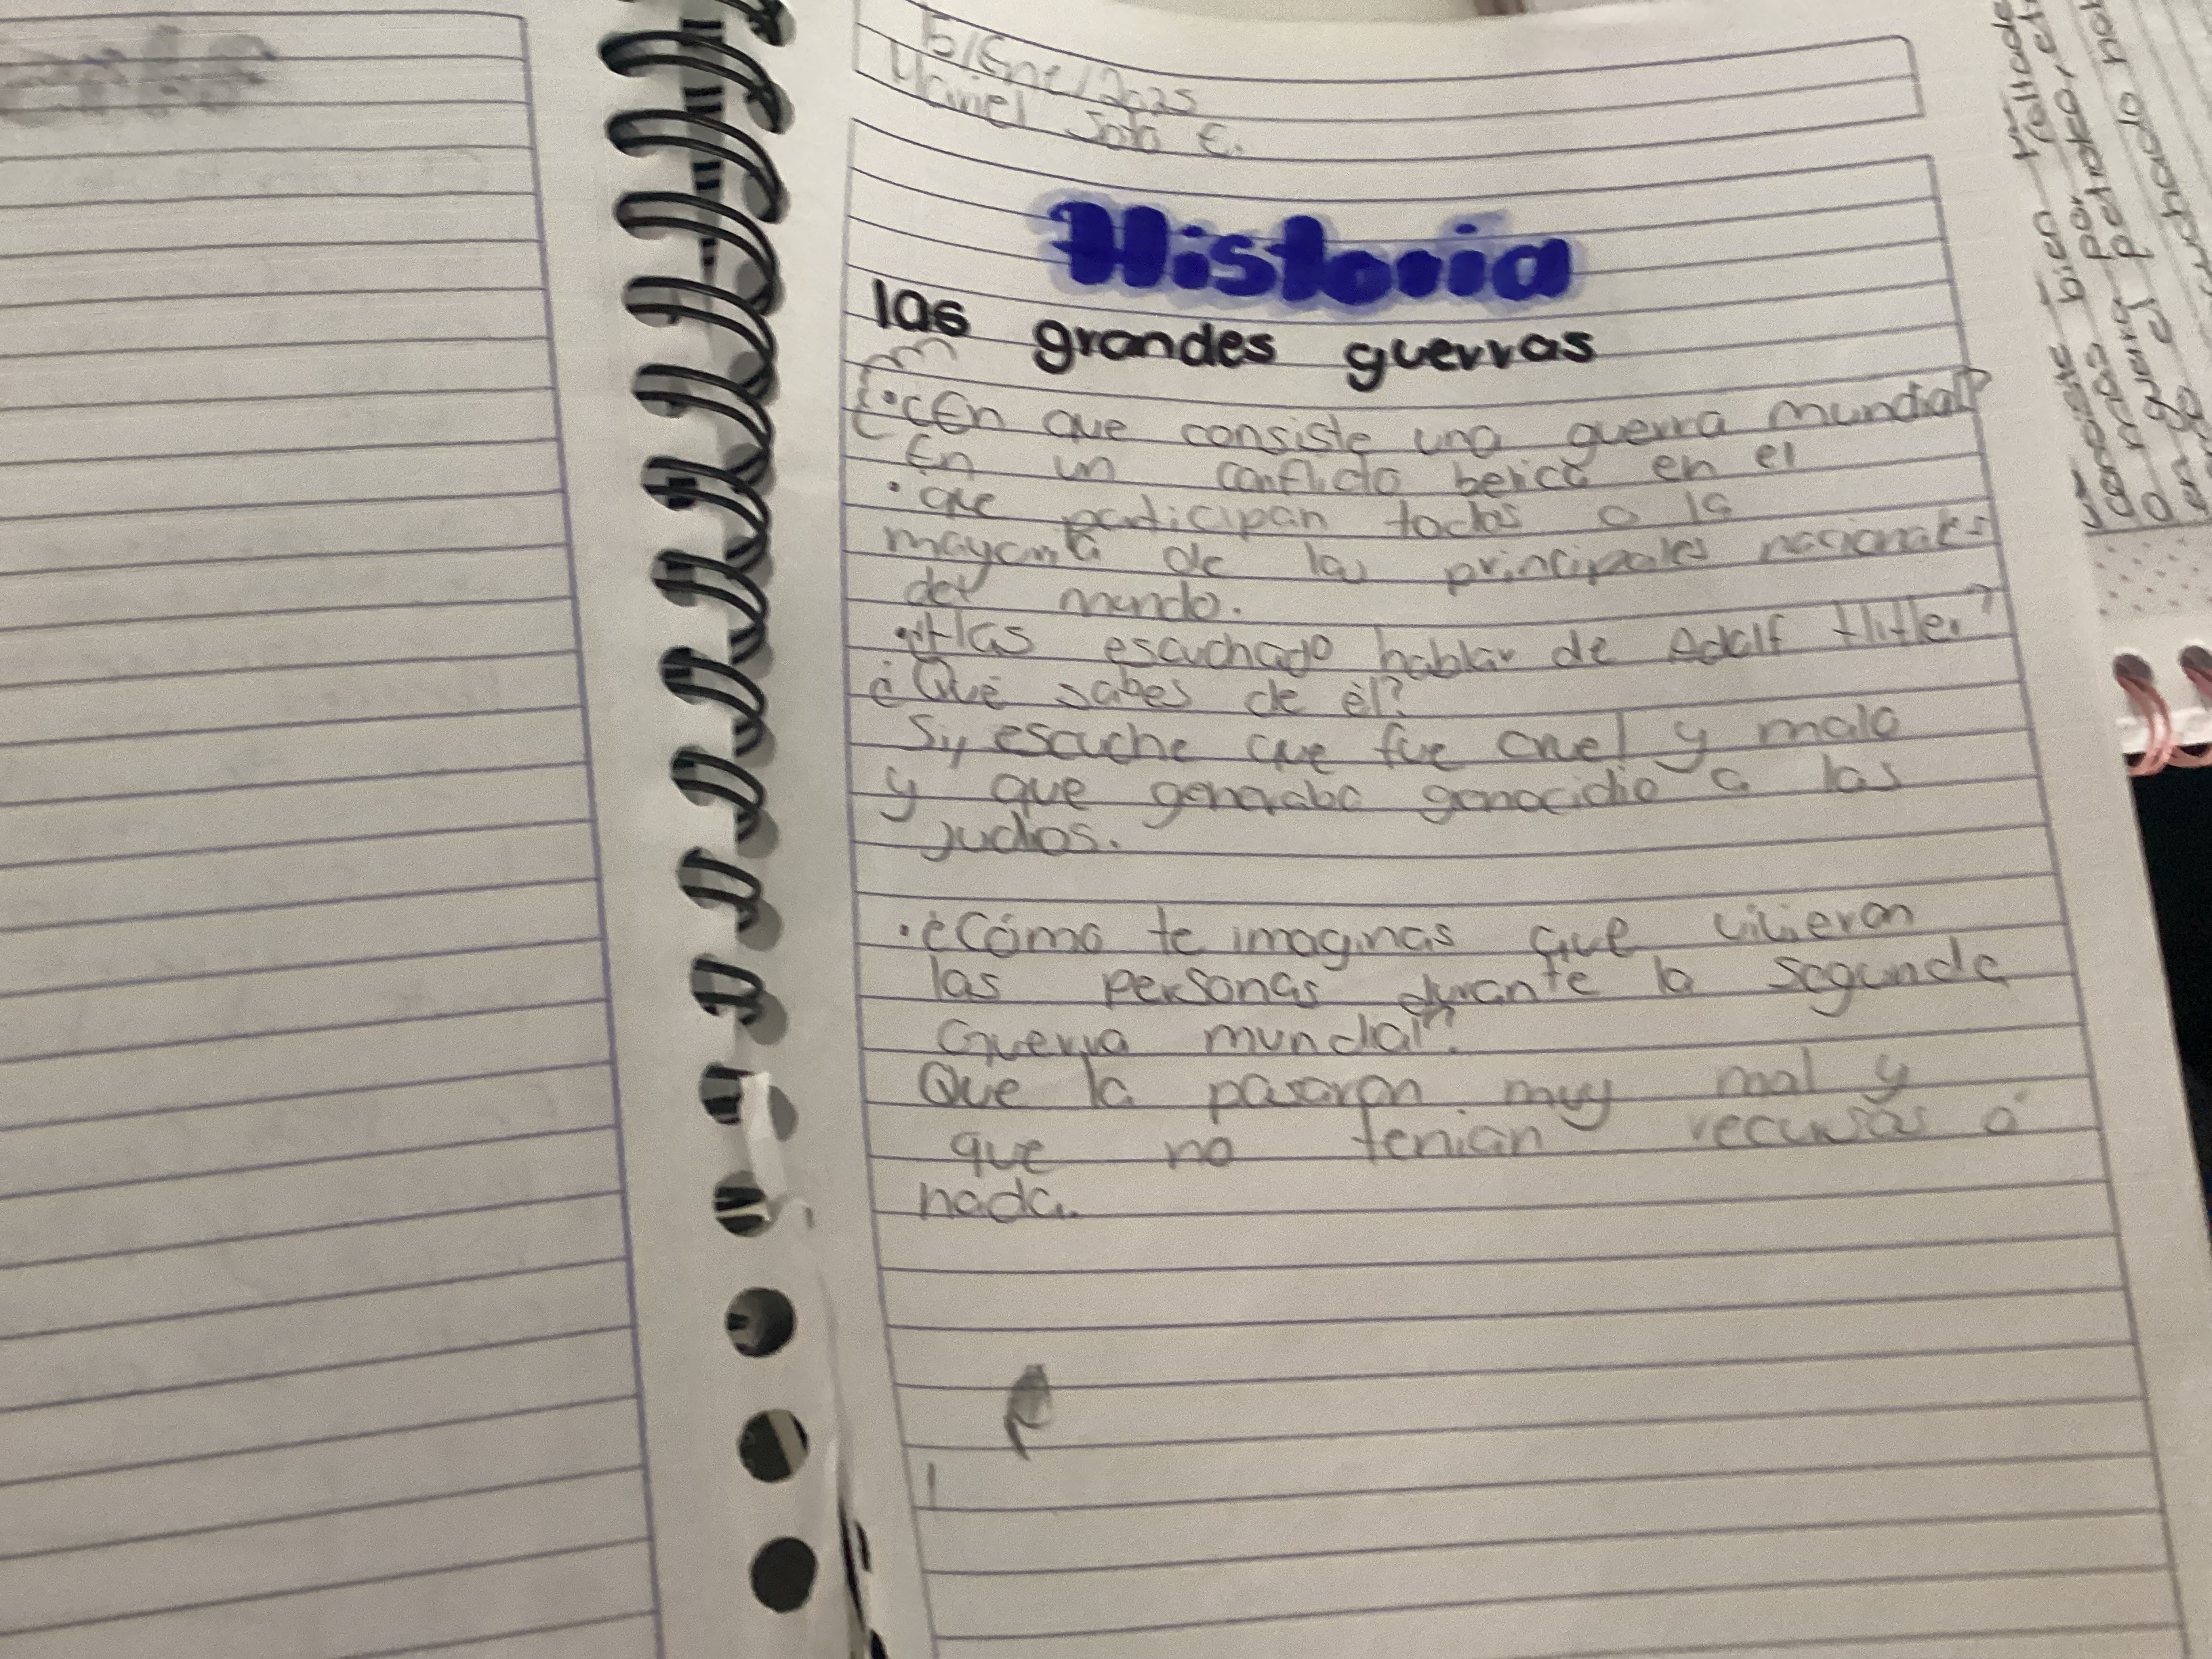 5/Ene/2025
Mariel Soto E.
Historia
las grandes guerras
• ¿En que consiste una guerra mundial?
En un conflicto belico en el
• que participan todos o la
mayoria de las principales nacionales
del mundo.
• Has escuchado hablar de Adolf Hitler?
¿Qué sabes de él?
Si, escuche que fue cruel y malo
y que generaba genocidio a los
judios.
• ¿Cómo te imaginas que vivieron
las personas durante la segunda
Guerra mundial?
Que la pasaron muy mal y
que no tenian recursos o
nada.
bien
por
petroleo,
guerra
petroleo
el